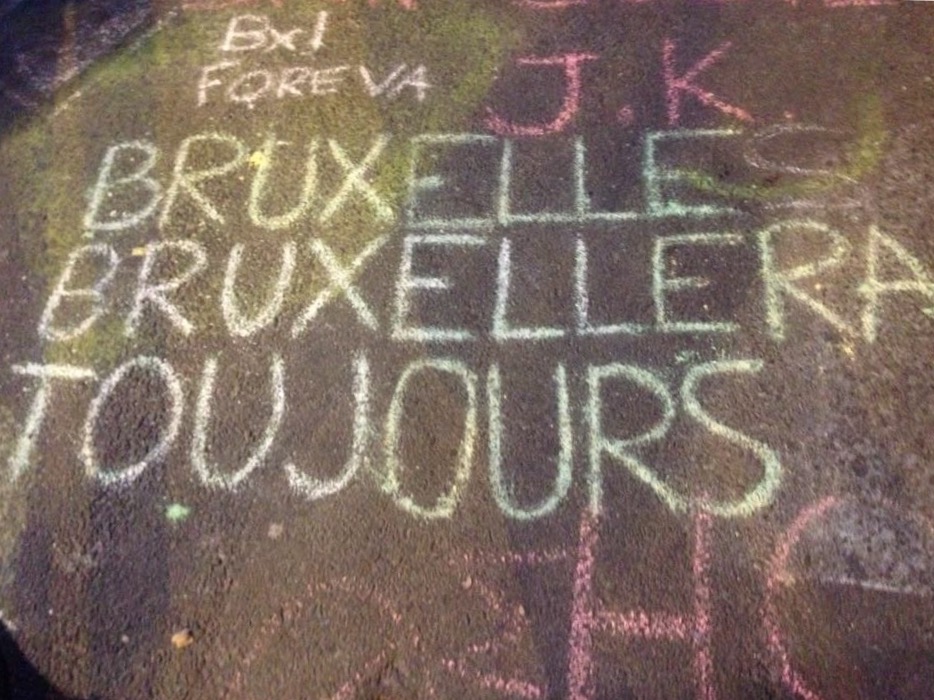 Bxl
FOREVA
J.K.
BRUXELLES
BRUXELLERA
TOUJOURS